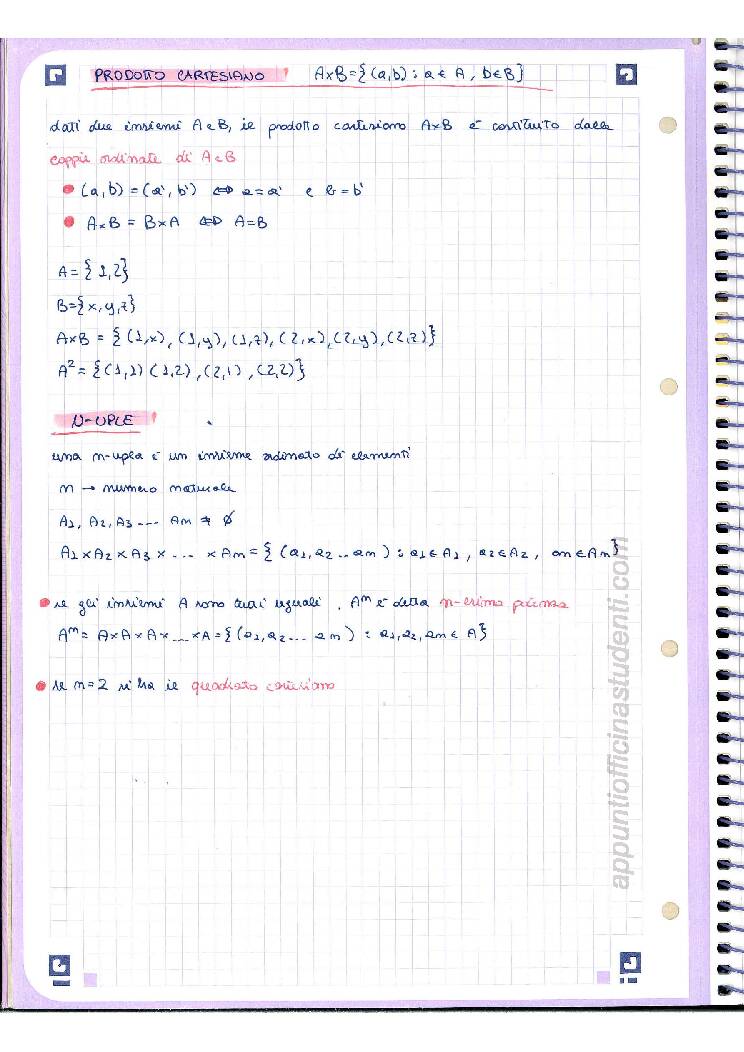 PRODOTTO CARTESIANO A×B={(a,b) : a ∈ A, b∈B}
dati due insiemi A e B, il prodotto cartesiano A×B è costituito dalle
coppie ordinate di A e B
(a,b) = (a', b') ⇔ a=a' e b=b'
A×B = B×A ⇔ A=B
A={1,2}
B={x,y,z}
A×B = {(1,x),(1,y),(1,z),(2,x),(2,y),(2,z)}
A² = {(1,1) (1,2), (2,1), (2,2)}
N-UPLE
una n-upla è un insieme ordinato di elementi
n → numero naturale
A1, A2, A3 ... An ≠ ∅
A1×A2×A3× ... ×An = {(a1,a2 .. an) : a1∈A1, a2∈A2, an∈An}
se gli insiemi A sono tutti uguali, Aⁿ è detta n-esima potenza
Aⁿ = A×A×A× ... ×A = {(a1,a2 ... an) : a1,a2,an∈ A}
se n=2 si ha il quadrato cartesiano
appuntiofficinastudenti.com